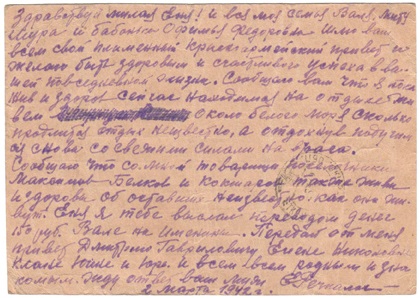 Здравствуй милая Еня! и вся моя семья Валя,
Шура и бабочка Ефимья Федоровна Шлю Вам
всем свой пламенный Красноармейский привет и
желаю быть здоровыми и счастливого успеха в ва-
шей повседневной жизни. Сообщаю Вам что я пока
жив и здоров сейчас нахожусь на отдыхе
около Белого моря сколько
отдых неизвестно, а отдохнув
снова со свежими силами на врага.
Сообщаю что со мной товарищи
Максимов Белков и также живы
и здоровы об остальных неизвестно как они жи-
вут. Еня я тебе выслал переводом денег
150 руб. Вале на именины. Передай от меня
привет Дмитрию Гавриловичу Елене
Клане Юние и Юре и всем всем родным и зна-
комым. Жду ответ ваш
2 марта 1942